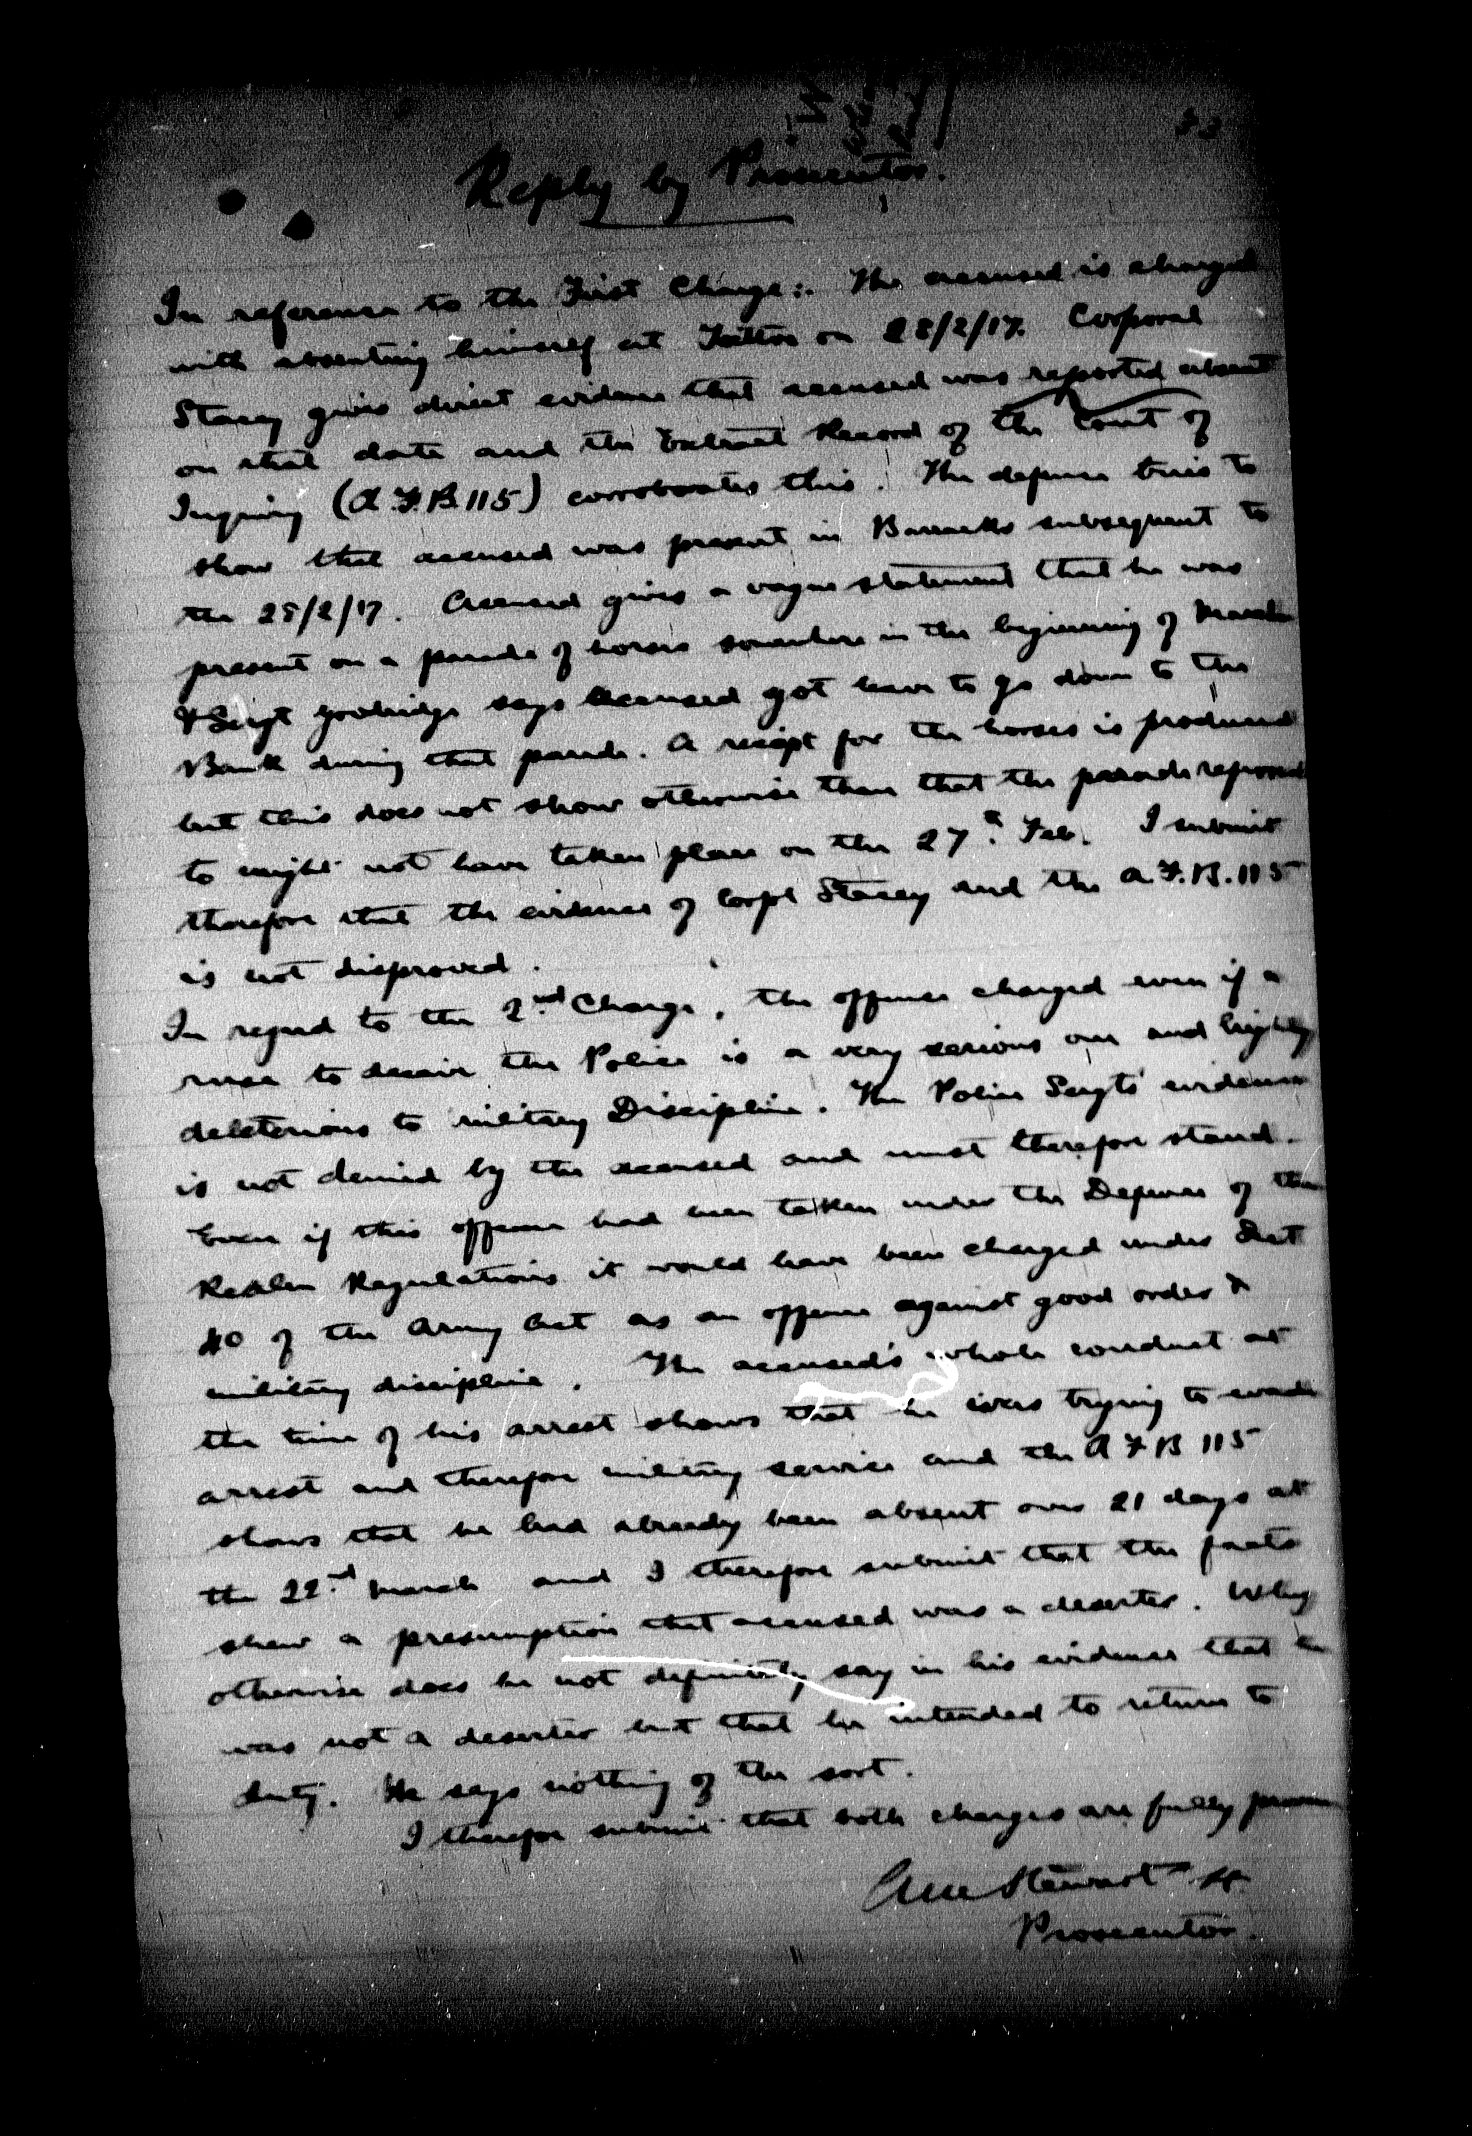 Reply by Prosecutor.
In reference to the First Charge:. The accused is charged
with absenting himself at on 28/2/17. Corporal
Stacey gives direct evidence that accused was reported absent
on that date and the Extract Record of the Court of
Inquiry (A.F.B.115) corroborates this. The defence tries to
show that accused was present in Barracks subsequent to
the 28/2/17. Accused gives a vague statement that he was
present on a parade of horses somewhere in the beginning of March
& Sergt Goodridge says accused got leave to go down to the
Bank during that parade. A receipt for the horses is produced
but this does not show otherwise than that the parade referred
to might not have taken place on the 27th Feb. I submit
therefore that the evidence of Corpl Stacey and the A.F.B.115
is not disproved.
In regard to the 2nd Charge, the offence charged even if a
ruse to deceive the Police is a very serious one and highly
deleterious to military Discipline. The Police Sergts' evidence
is not denied by the accused and must therefore stand.
Even if this offence had been taken under the Defence of the
Realm Regulations it would have been charged under Sect
40 of the Army Act as an offence against good order &
military discipline. The accused's whole conduct at
the time of his arrest shows that he was trying to evade
arrest and therefore military service and the A F B 115
shows that he had already been absent over 21 days at
the 22nd March and I therefore submit that the facts
shew a presumption that accused was a deserter. Why
otherwise does he not definitely say in his evidence that he
was not a deserter but that he intended to return to
duty. He says nothing of the sort.
I therefore submit that both charges are fully proven
Stewart Lt.
Prosecutor.